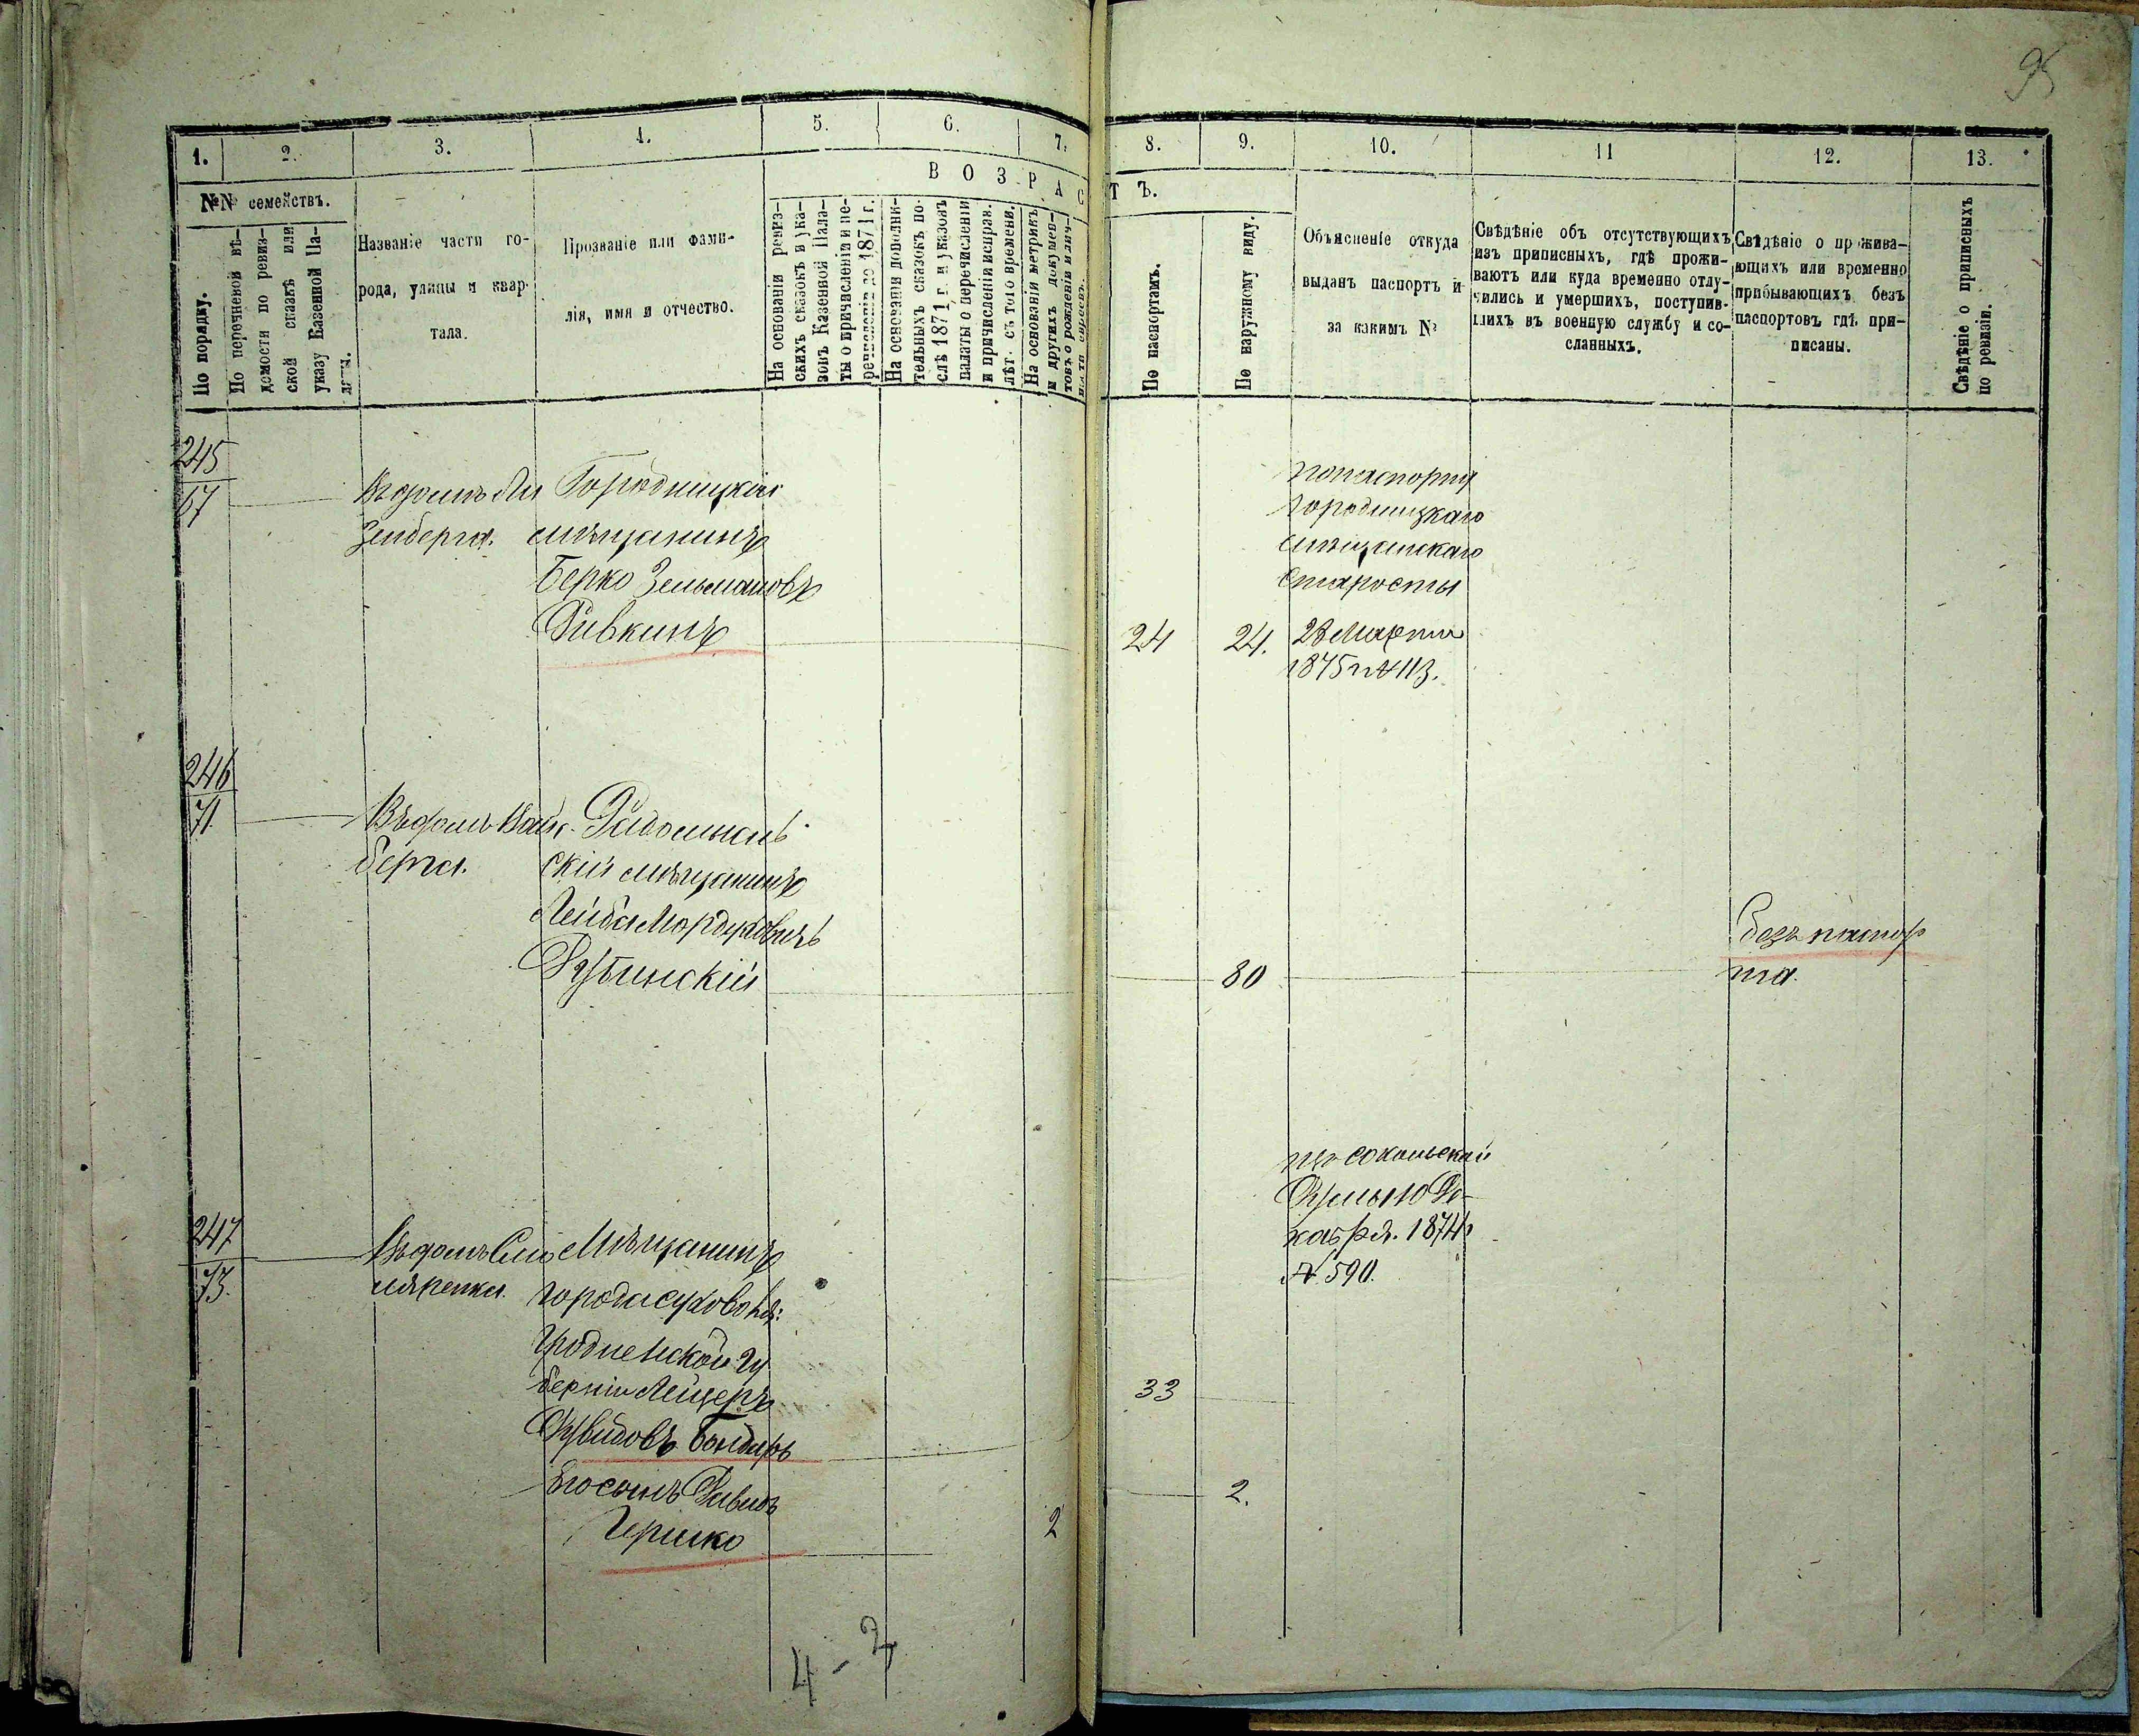 95
1. 2. 3. 4. 5. 6. 7. 8. 9. 10. 11 12. 13.
№№ семействъ.
По порядку.
По перечневой вѣ-
домости по ревиз-
ской сказкѣ или
указу Казенной Па-
латы.
Названіе части го-
рода, улицы и квар-
тала.
Прозваніе или фами-
лія, имя и отчество.
ВОЗРАСТЪ.
На основаніи ревиз-
скихъ сказокъ и ука-
зовъ Казенной Пала-
ты о причисленіи и пе-
речисленіи до 1871 г.
На основаніи дополни-
тельныхъ сказокъ по-
слѣ 1871 г. и указовъ
палаты о перечисленіи
и причисленіи исправ.
лѣт. съ того времени.
На основаніи метрикъ
и другихъ докумен-
товъ о рожденіи и лич-
По паспортамъ.
По наружному виду.
Объясненіе откуда
выданъ паспортъ и
за какимъ №
Свѣдѣніе объ отсутствующихъ
изъ приписныхъ, гдѣ прожи-
ваютъ или куда временно отлу-
чились и умершихъ, поступив-
шихъ въ военную службу и со-
сланныхъ.
Свѣдѣніе о прожива-
ющихъ или временно
прибывающихъ безъ
паспортовъ гдѣ при-
писаны.
Свѣдѣніе о приписныхъ
по ревизіи.
245
67
Въ домѣ Ли
зенберга.
Городницкій
мѣщанинъ
Берко Зельмановъ
Ривкинъ
24 24.
по паспорту
городницкаго
мѣщанскаго
старосты
28 Марта
1875 г № 113.
246
71.
Въ домѣ Вайн-
берга.
Радомысль
скій мѣщанинъ
Лейба Мордуховичъ
80
безъ паспор
та.
247
73.
Въ домѣ
ляренка.
Мѣщанинъ
города
Гродненской Гу
берніи Лейзеръ
Бондарь
Его сынъ Давидъ
Гершко
2
33
2.
Думы 10 Де-
кабря. 1874
№ 590.
4 - 2